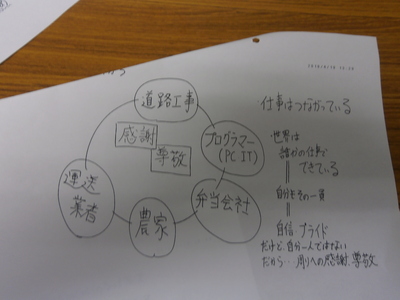 道路工事
感謝
尊敬
プログラマー
(PC IT)
運送
業者
農家
弁当会社
仕事はつながっている
世界は
誰かの仕事で
できている
自分もその一員
自信 プライド
だけど、自分一人ではない
だから…周りへの感謝、尊敬